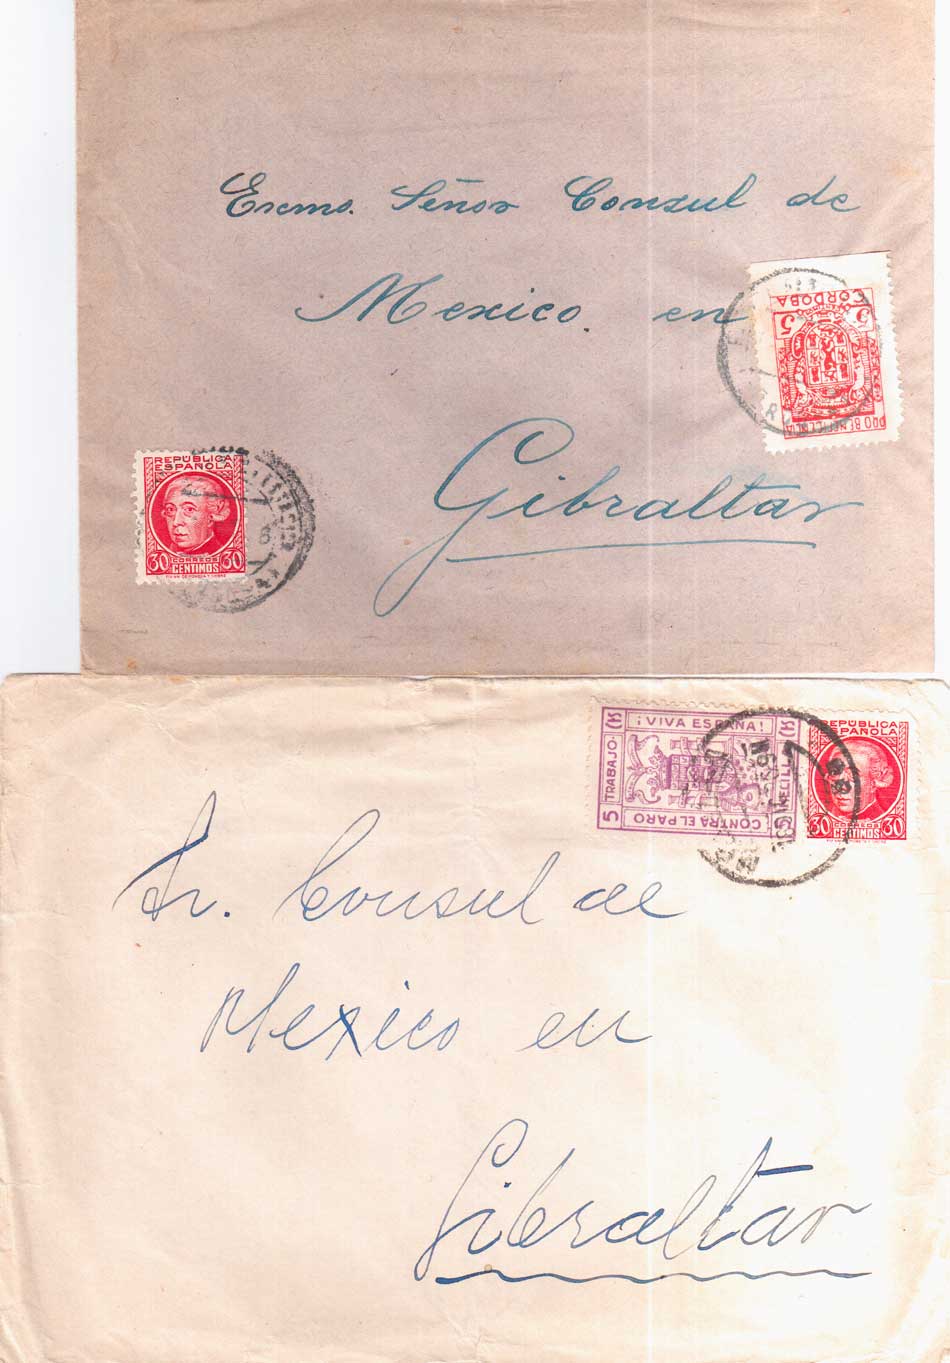 Excmo. Señor Consul de
Mexico. en
Gibraltar
CORDOBA
5 5
PRO BENEFICENCIA
REPUBLICA
ESPAÑOLA
30 CORREOS 30
CENTIMOS
¡VIVA ESPAÑA!
TRABAJO
5 CONTRA EL PARO
REPUBLICA
ESPAÑOLA
30 CORREOS 30
CENTIMOS
Sr. Consul de
Mexico en
Gibraltar